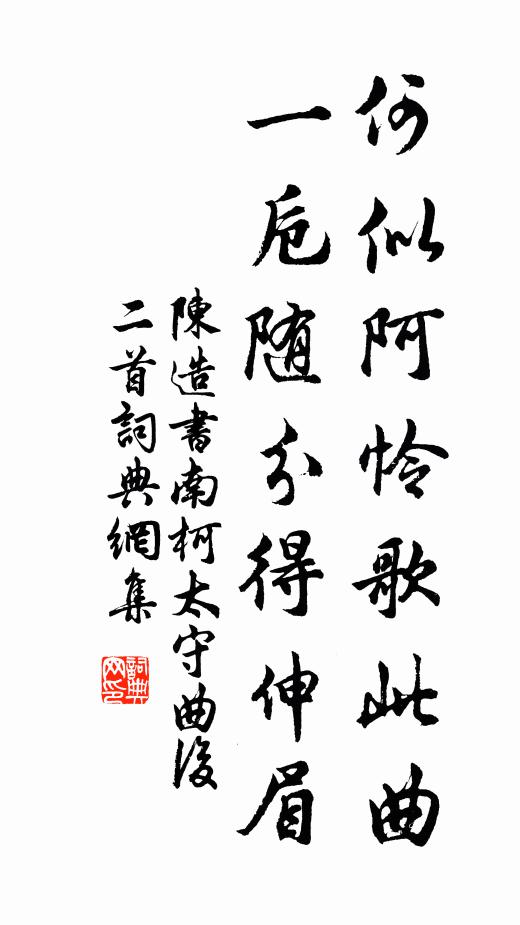 何似阿怜歌此曲
一卮随分得伸眉
陳造書南柯太守曲後
二首詞典網集
詞典網印